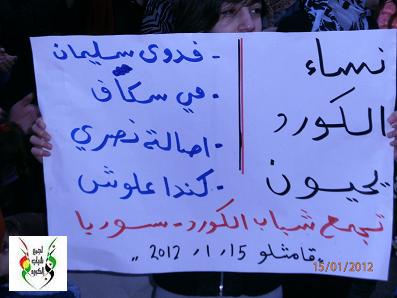 نساء
الكورد
يحيون
- فدوى سليمان
- مي سكاف
- اصالة نصري
- كندا علوش
تجمع شباب الكورد - سوريا
قامشلو 15 / 1 / 2012 ,,
15/01/2012
تجمع
شباب
الكورد